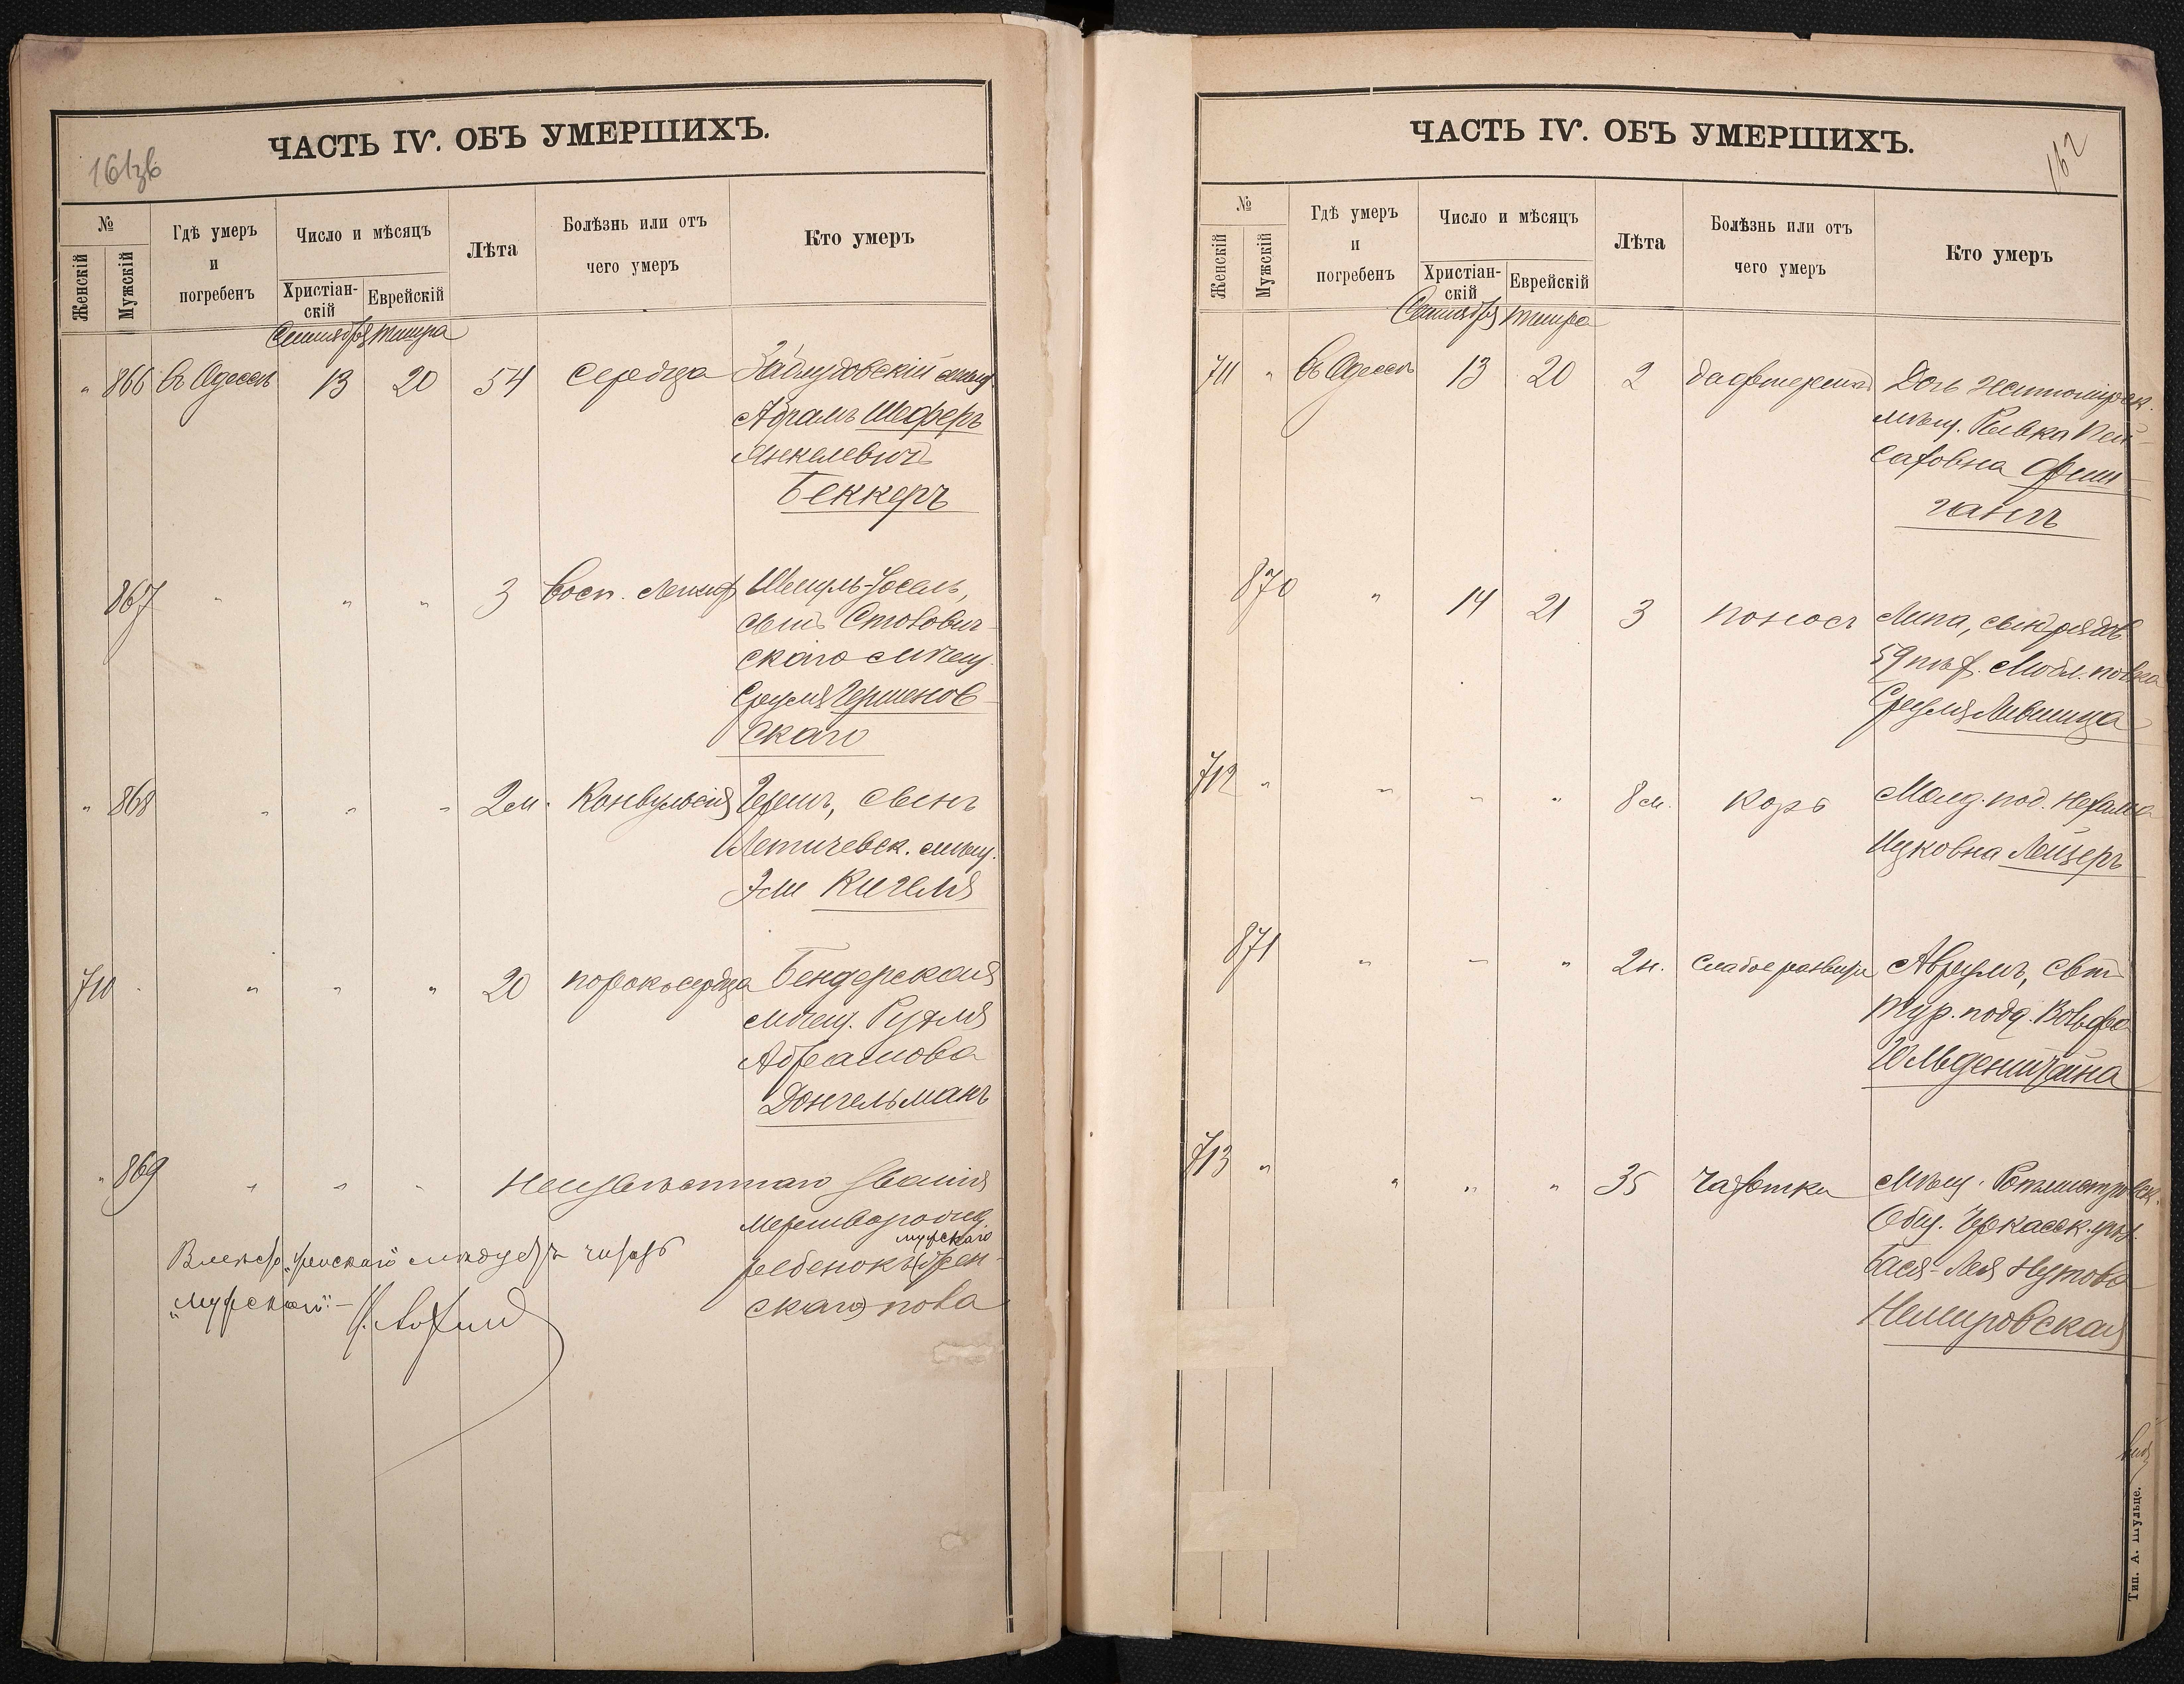 ЧАСТЬ IV. ОБЪ УМЕРШИХЪ.
161зв
№
Женскій
Мужскій
Гдѣ умеръ
и
погребенъ
Число и мѣсяцъ
Христіан-
скій
Еврейскій
Лѣта
Болѣзнь или отъ
чего умеръ
Кто умеръ
Сентября Тишра
" 866 въ Одессѣ 13 20 54 сердца Заблудовскій мѣщ.
Абрамъ Шеферъ
Янкелевичъ
Беккеръ
867 " " " 3 Восп. Шмуль-Іосель,
сынъ Стовович-
скаго мѣщ.
Сруля Гершенов-
скаго
" 868 " " " 2 м. Конвульсія Гершъ, сынъ
Летичевск. мѣщ.
Эли Кигеля
710 " " " 20 порокъ сердца Бендерская
мѣщ. Рухля
Абрамова
Донгельманъ
" 869 " " " Неизвѣстнаго званія
мертворожд.
мужскаго
ребенокъ (жен-
скаго) пола
Вмѣсто „женскаго" слѣдуетъ читать
„мужскаго".—
ЧАСТЬ IV. ОБЪ УМЕРШИХЪ.
162
№
Женскій
Мужскій
Гдѣ умеръ
и
погребенъ
Число и мѣсяцъ
Христіан-
скій
Еврейскій
Лѣта
Болѣзнь или отъ
чего умеръ
Кто умеръ
Сентября Тишра
711 " въ Одессѣ 13 20 2 Дочь Житомірск.
мѣщ. Ривка Пей-
саховна Фиш-
гангъ
870 " 14 21 3 поносъ Липа, сынъ рядов.
59 пѣх. Любл. полка
Сруля Лившица
712 " " " " 8 м. корь Молд. под. Нехама
Ицковна Лейзеръ
871 " " " 2 н. Слабое развитіе Аврумъ, сынъ
Тур. подд. Вольфа
Гольденштейна
713 " " " " 35 Чахотка Мѣщ. Ротмистровск.
Общ. Черкасск. уѣз.
Бася-Лея Нутова
Немировская
Тип. А. Шульце.